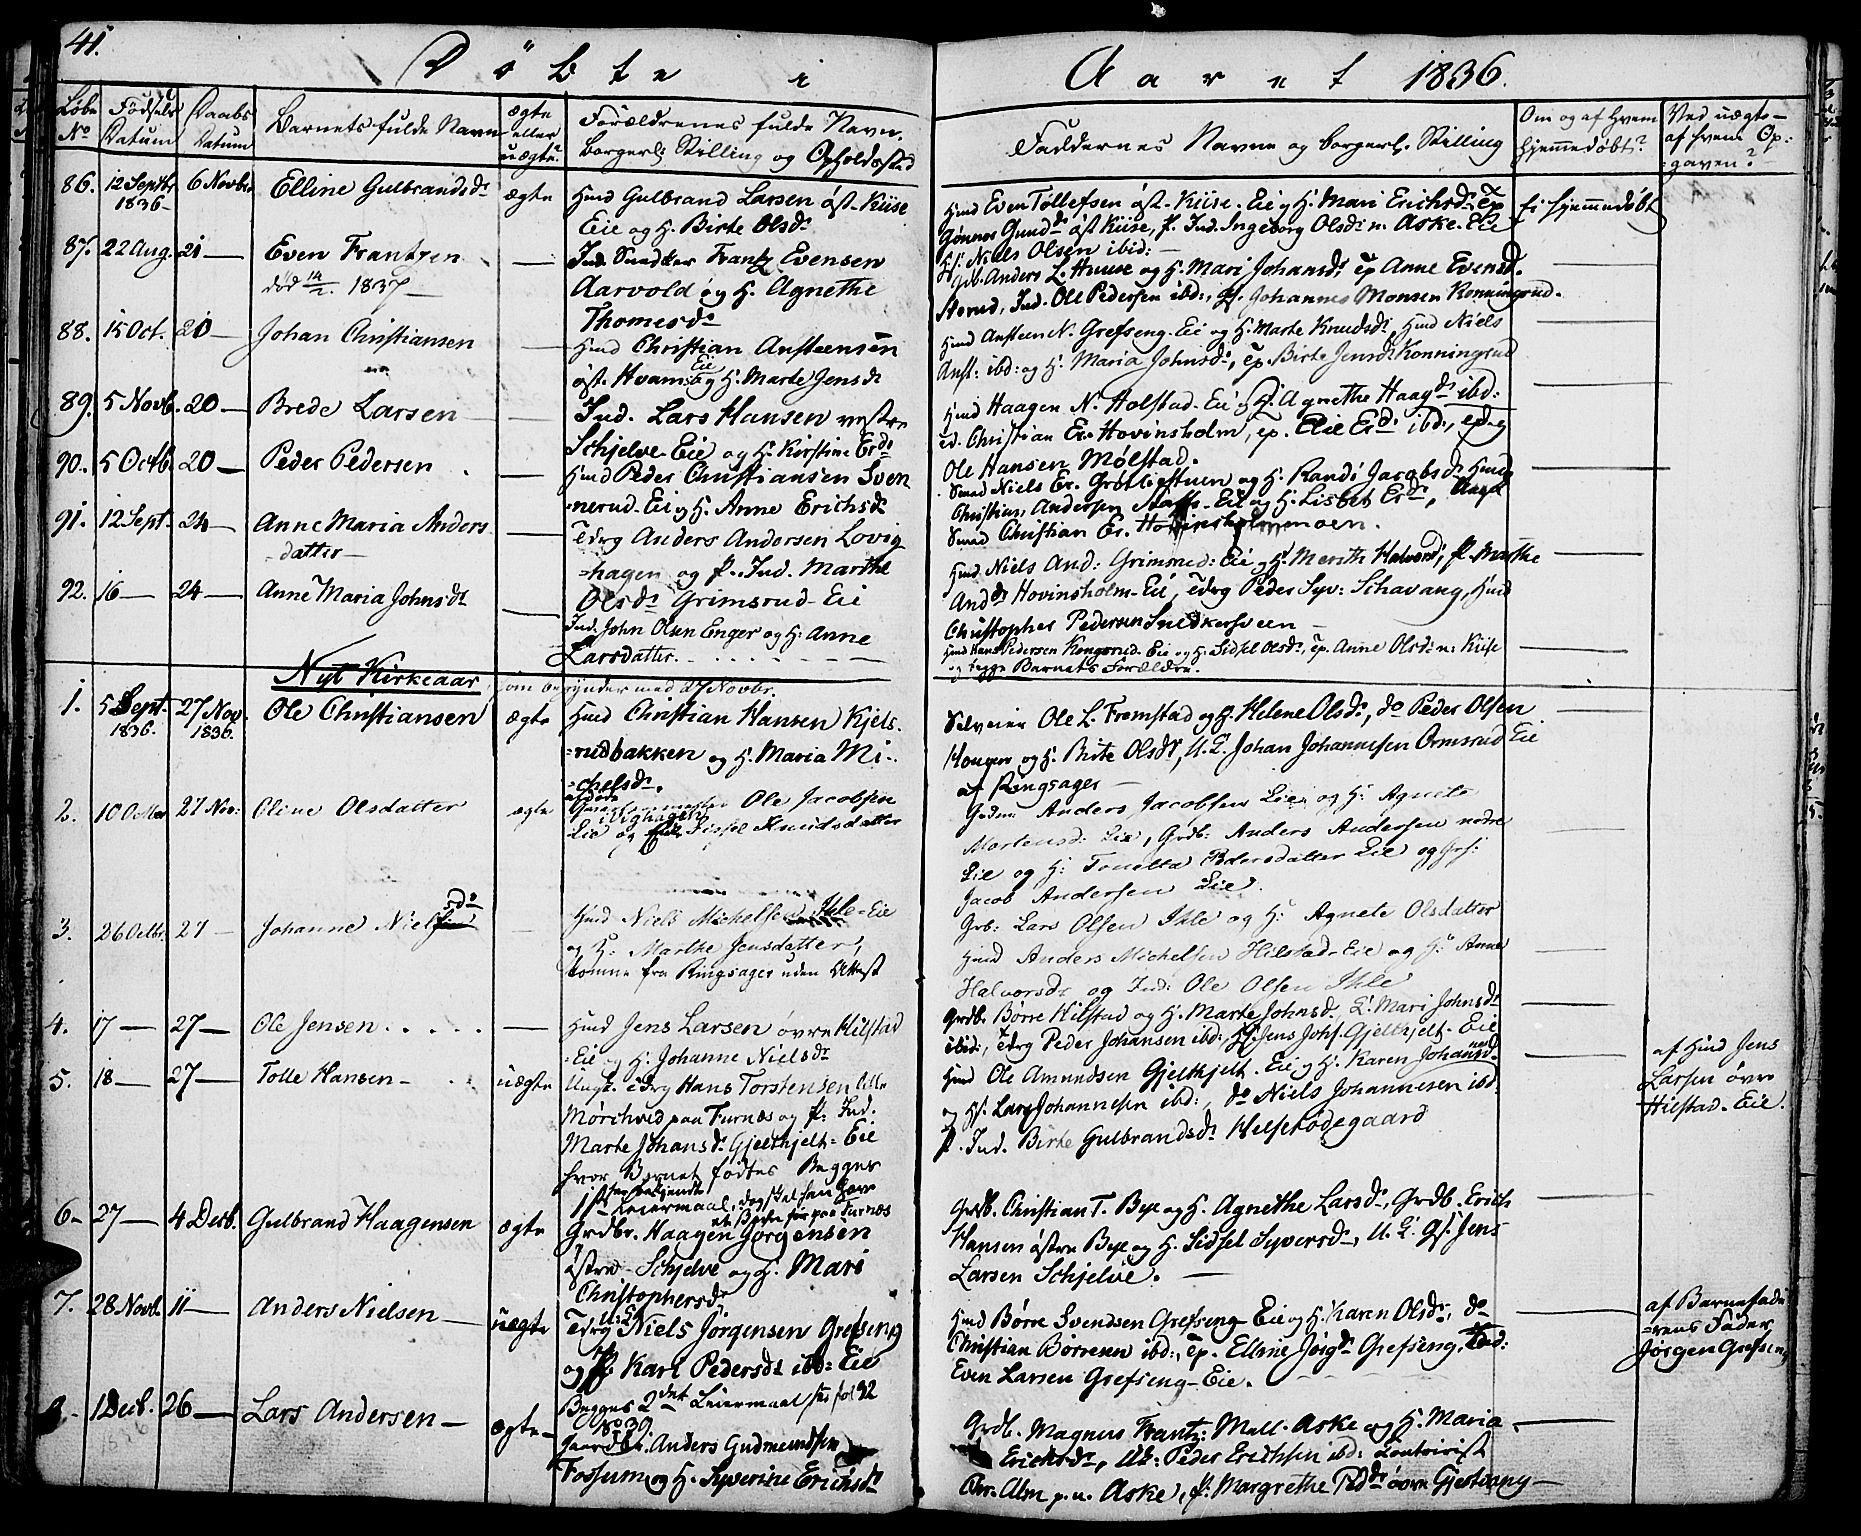 41.
Döbte i
Aaret 1836.
Löbe No
Födsels Datum
Daabs Datum
Barnets fulde Navn
ægte eller uægte?
Forældrenes fulde Navn,
borgerl: Stilling og Opholdssted
Faddernes Navne og borgerl. Stilling
Om og af hvem
hjemmedöbt?
Ved uægte –
af hvem Op:
=gaven?
86. 12 Septbr 1836 – 6 Novbr Elline Gulbrandsdr ægte Hmd Gulbrand Larsen öst-Kiise
Eie og H. Birte Olsdr
Hmd Even Tollefsen öst-Kiise-Eie og H. Mari Erichsdr: Ep
Gönnor Gundr öst Kiise, f. Ind. Ingeborg Olsdr n. Aske-Eie
Niels Olsen ibid: –
Ei hjemmedöbt
87. 22 Aug. 21 – Even Frantzen –
död 14/2. 1837 –
Ind. Snedker Frantz Evensen
Aarvold og H. Agnethe
Thomesdr
Grb. Anders L. Huuse og H. Mari Johansdr Ep Anne Evensd.
Storud, Ind. Ole Pedersen ibd:, Johannes Monsen Konningsrud.
88. 15 Oct. 20 – Johan Christiansen –
Hmd Christian Ansteensen
öst-Hvams Eie og H. Marte Jensdr
Hmd Ansteen N. Grefseng-Eie og H. Marte Knudsdr, Hmd Niels
Anst: ibd: og H. Maria Johnsdr, Ep. Birte Jensdr Konningsrud
89. 5 Novb. 20 – Brede Larsen –
Ind. Lars Hansen vestre
Schjelve-Eie og H. Kirstine Erdr
Hmd Haagen N. Holstad-Eie og H. Agnethe Haagdr ibd:
Christian Er. Hovinsholm, ep. Elie Erdr ibd:,
Ole Hansen Mölstad.
90. 5 Octb. 20 – Peder Pedersen . –
Hmd Peder Christiansen Sven
nerud-Eie og H. Anne Erichsdr
Smed Niels Er. og H. Randi Jacobsdr Hmd
Christian Andersen Eie og H. Lisbet Erdr,
Smed Christian Er. Hovinsholmmoen.
91. 12 Sept. 24 – Anne Maria Anders
datter –
Edrg Anders Andersen Lovig
=hagen og f. Ind. Marthe
Olsdr Grimsrud-Eie
Hmd Niels And: Grimsrud: Eie og H. Merith Halvordr, f. Marthe
Anddr Hovinsholm-Eie, Edrg Peder Syv: Schavang, Hmd
Christopher Pedersen Snedkersveen –
92. 16 – 24 – Anne Maria Johnsdr –
Ind. John Olsen Enger og H: Anne
Larsdatter. . . . . . . .
Hmd Hans Pedersen Kongsrud-Eie og H. Sidsel Olsdr, Ep. Anne Olsdr n: Kiise
og begge Barnets Forældre.
Nyt Kirkeaar, som begynder med 27 Novbr.
1. 5 Sept. 1836. 27 Nov. 1836. Ole Christiansen ægte Hmd Christian Hansen Kjels.
=rudbakken og H. Maria Mi-
=chelsdr.
Selveier Ole L. Fremstad og H. Helene Olsdr, do Peder Olsen
Hougen og H. Birte Olsdr, U. E. Johan Johannesen Ormsrud Eie
af Ringsager –
2. 10 October 27 Nov: Oline Olsdatter ægte
Ole Jacobsen
Eie og Sissel Knudsdatter
Grdm: Anders Jacobsen Lie og H: Agnete
Mortensd: Lie, Grdb: Anders Andersen nedre
Lie og H: Tonetta Pedersdatter Lie og
Jacob Andersen Lie.
3. 26 Octbr. 27 – Johanne Nielsdr –
Hmd Niels Michelsen Ihle-Eie
og H: Marthe Jensdatter,
komne fra Ringsager uden Attest
Grb: Lars Olsen Ihle og H: Agnete Olsdatter
Hmd Anders Michelsen Hilstad-Eie og H: Anne
Halvorsdr og Ind: Ole Olsen Ihle
4. 17 – 27 – Ole Jensen . . . . . –
Hmd Jens Larsen övre Hilstad
=Eie og H. Johanne Nielsdr
Grdb. Börre Hilstad og H. Marte Johnsd. Mari Johnsdr
ibid:, Edrg Peder Johansen ibd:, Jens Johs. Gjelthjelt-Eie
5. 18 – 27 – Tolle Hansen – . . uægte
Ungk. Edrg Hans Torstensen
Mörchved paa Furnæs og f: Ind.
Marte Johansdr Gjelthjelt-Eie
hvor Barnet födtes Begges
1ste Leiermaal, dog skal han have
et Barn för paa Furnæs
Hmd Ole Amundsen Gjelthjelt-Eie og H. Karen Johansd.
og Lars Johannesen ibd:, do Niels Johannesen ibd.
f. Ind. Birte Gulbrandsdr Helsetödegaard
af Hmd Jens
Larsen övre
Hilstad-Eie.
6 – 27 – 4 Decb. Gulbrand Haagensen ægte
Grdbr. Haagen Jörgensen
östre Schjelve og H. Mari
Christophersdr
Grdb. Christian T. Bye og H. Agnethe Larsdr, Grdb. Erich
Hansen östre Bye og H. Sidsel Syversdr, U. E. Gs. Jens
Larsen Schjelve. –
7. 28 Novb. 11 – Anders Nielsen – uægte
Edrg Niels Jörgensen Grefseng
og f. Kari Pedersdr ibd: Eie
Begges 2det Leiermaal see fol 92
No 39
Hmd Börre Svendsen Grefseng-Eie og H. Karen Olsdr, do
Christian Börresen ibd:, Ep. Elline Jörgdr Grefseng, Ind:
Even Larsen Grefseng-Eie.
af Barnefade
=rens Fader
Jörgen Grefseng
8. – 1 Decb. 1836 26 – Lars Andersen – ægte –
Gaardbr. Anders Gudmundsen
Fossum og H. Syverine Erichsdr
Grdb. Magnus Frantz: Mell-Aske og H. Maria –
Erichsdr, Peder Erichsen ibd: Contoirist
Chr. Alm p.n. Aske, f: Margrethe Peddr övre Gjestvang –